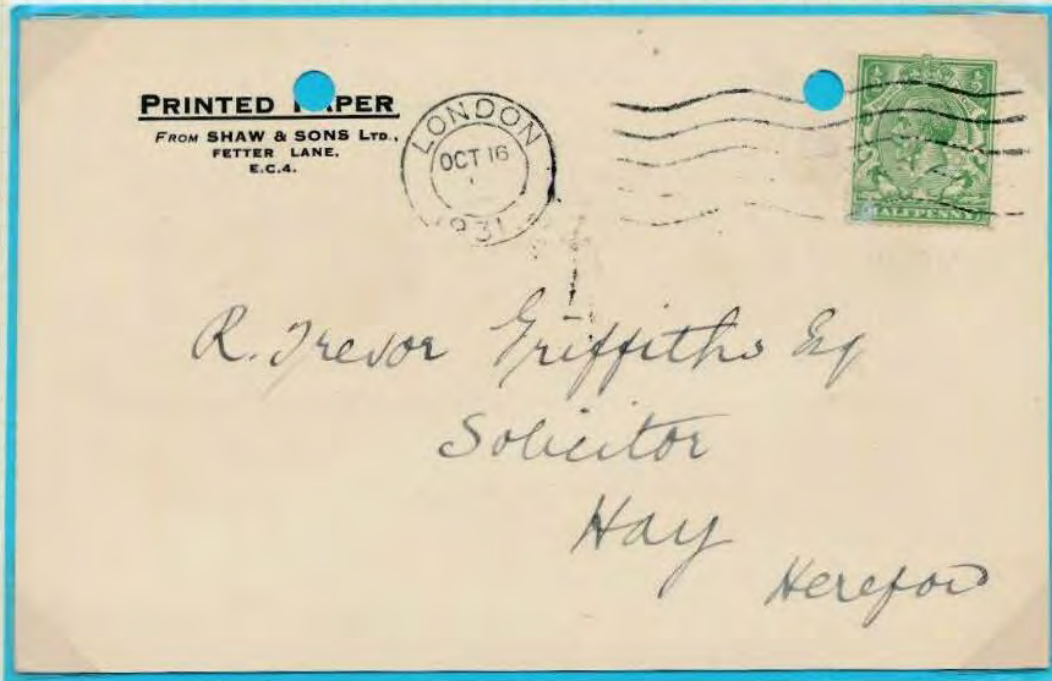 PRINTED PAPER
FROM SHAW & SONS LTD.,
FETTER LANE,
E.C.4.
LONDON
OCT 16
1931
½ ½
HALFPENNY
R. Trevor Griffiths Esq
Solicitor
Hay
Hereford